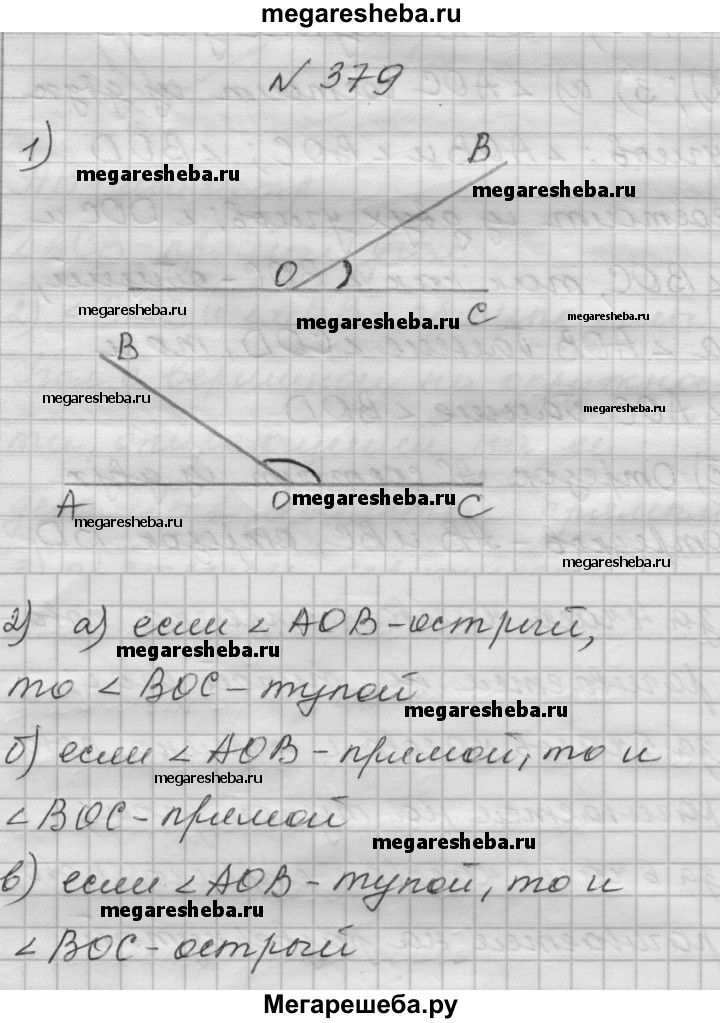 megaresheba.ru
N 379
1)
B
megaresheba.ru
megaresheba.ru
O
megaresheba.ru
megaresheba.ru
C
megaresheba.ru
B
megaresheba.ru
megaresheba.ru
A
O
megaresheba.ru
C
megaresheba.ru
megaresheba.ru
2) а) если ∠ AOB - острый,
megaresheba.ru
то ∠ BOC - тупой
megaresheba.ru
б) если ∠ AOB - прямой, то и
megaresheba.ru
∠ BOC - прямой
megaresheba.ru
в) если ∠ AOB - тупой, то и
megaresheba.ru
∠ BOC - острый
Мегарешеба.ру